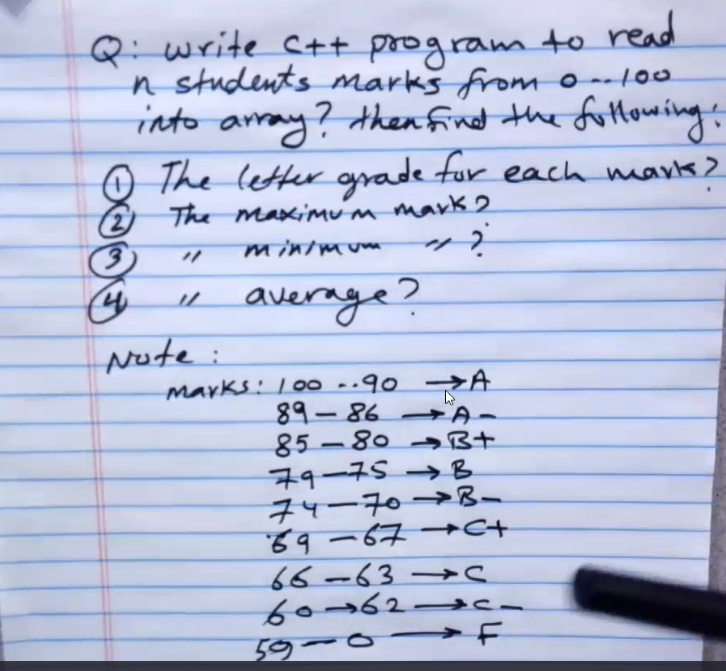 Q: write C++ program to read
n students marks from 0--100
into array? then find the following:
① The letter grade for each mark?
② The maximum mark?
③ " minimum " ?
④ " average?
Note:
marks: 100 --90 → A
89 – 86 → A-
85 – 80 → B+
79 – 75 → B
74 – 70 → B-
69 – 67 → C+
66 – 63 → C
60 → 62 → C-
59 – 0 → F